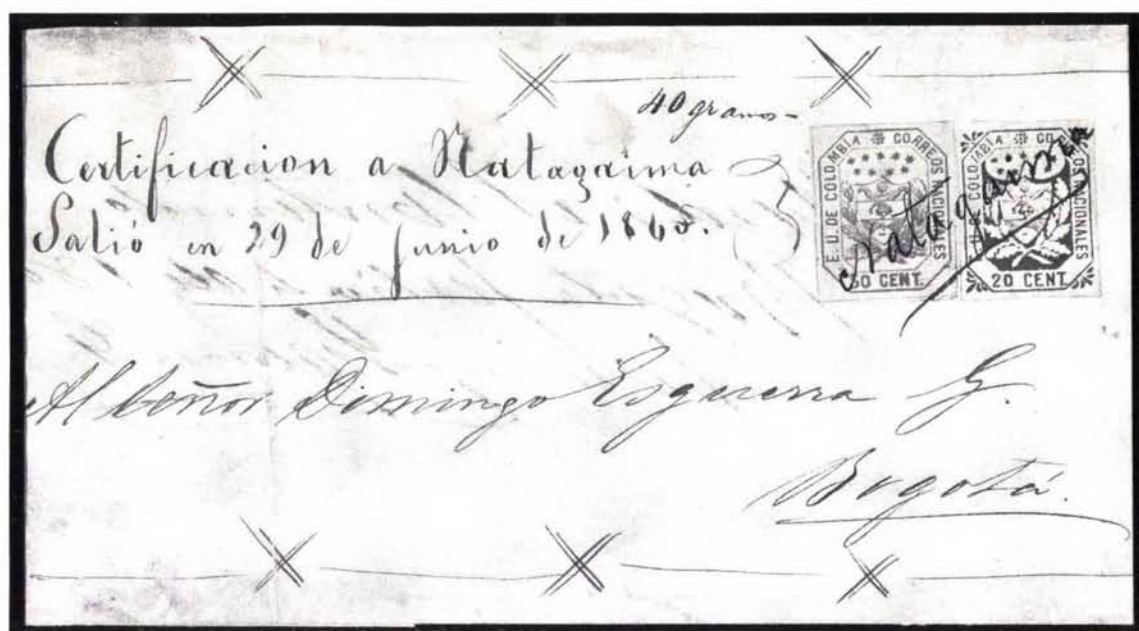 40 gramos-
Certificacion a Natagaima
Salió en 29 de junio de 1865.
E. U. DE COLOMBIA CORREOS NACIONALES
50 CENT.
E. U. COLOMBIA CORREOS NACIONALES
20 CENT.
Natagaima
Al Señor Domingo Esguerra G.
Bogotá.